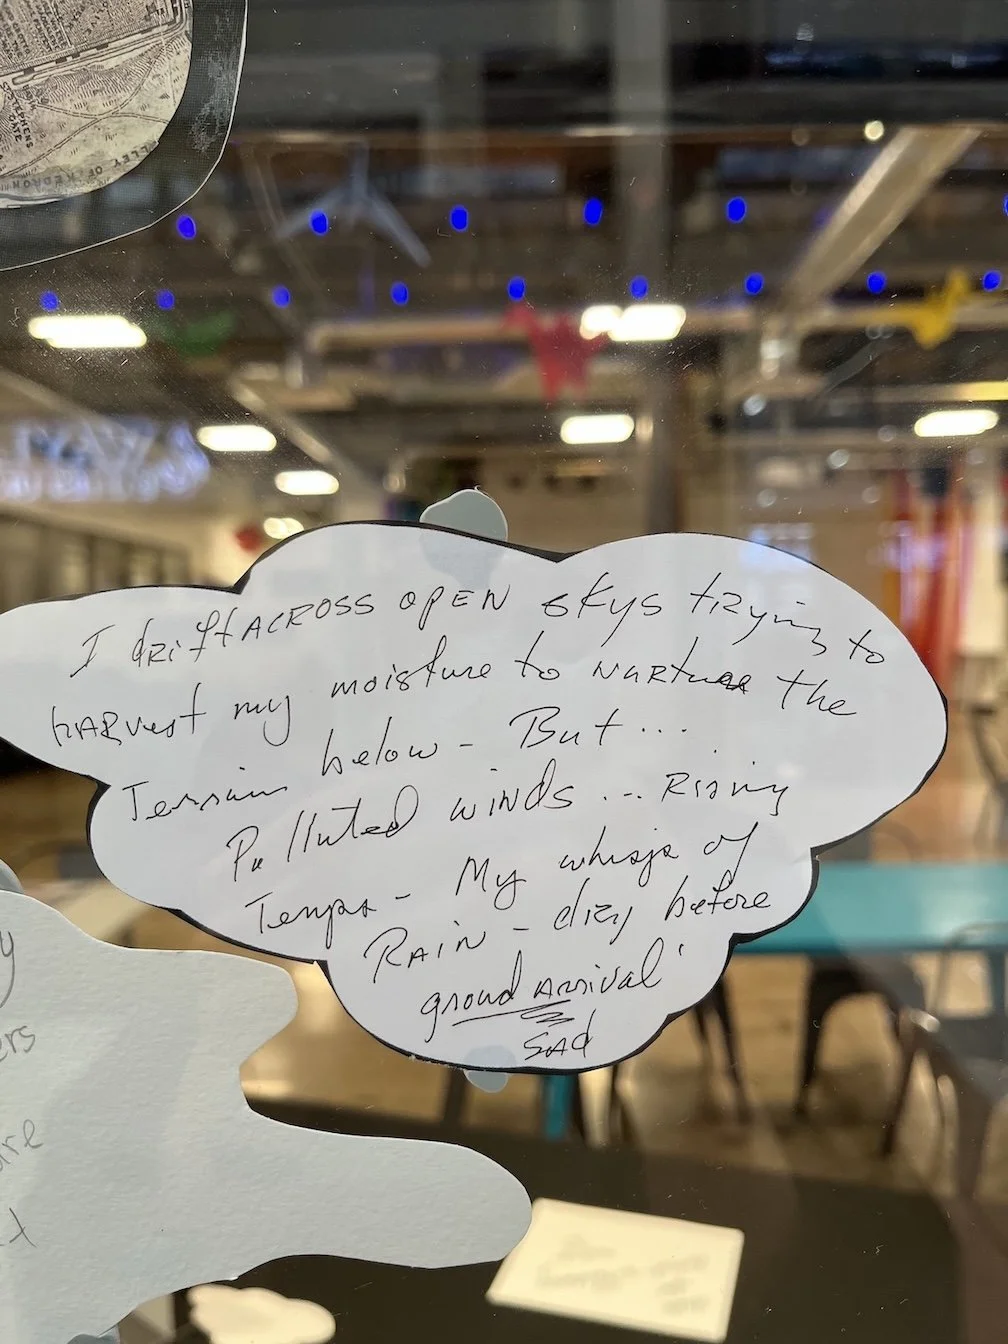 STEPHENS
GATE
LLEY OF KEDRON
I drift ACROSS OPEN skys tRying to
hARvest my moisture to NuRtuRe the
Terrain below - But ...
Polluted WINDS ... Rising
Temps - My whisps of
RAIN - dRy before
ground ARRival
SAd
y
ers
are
t